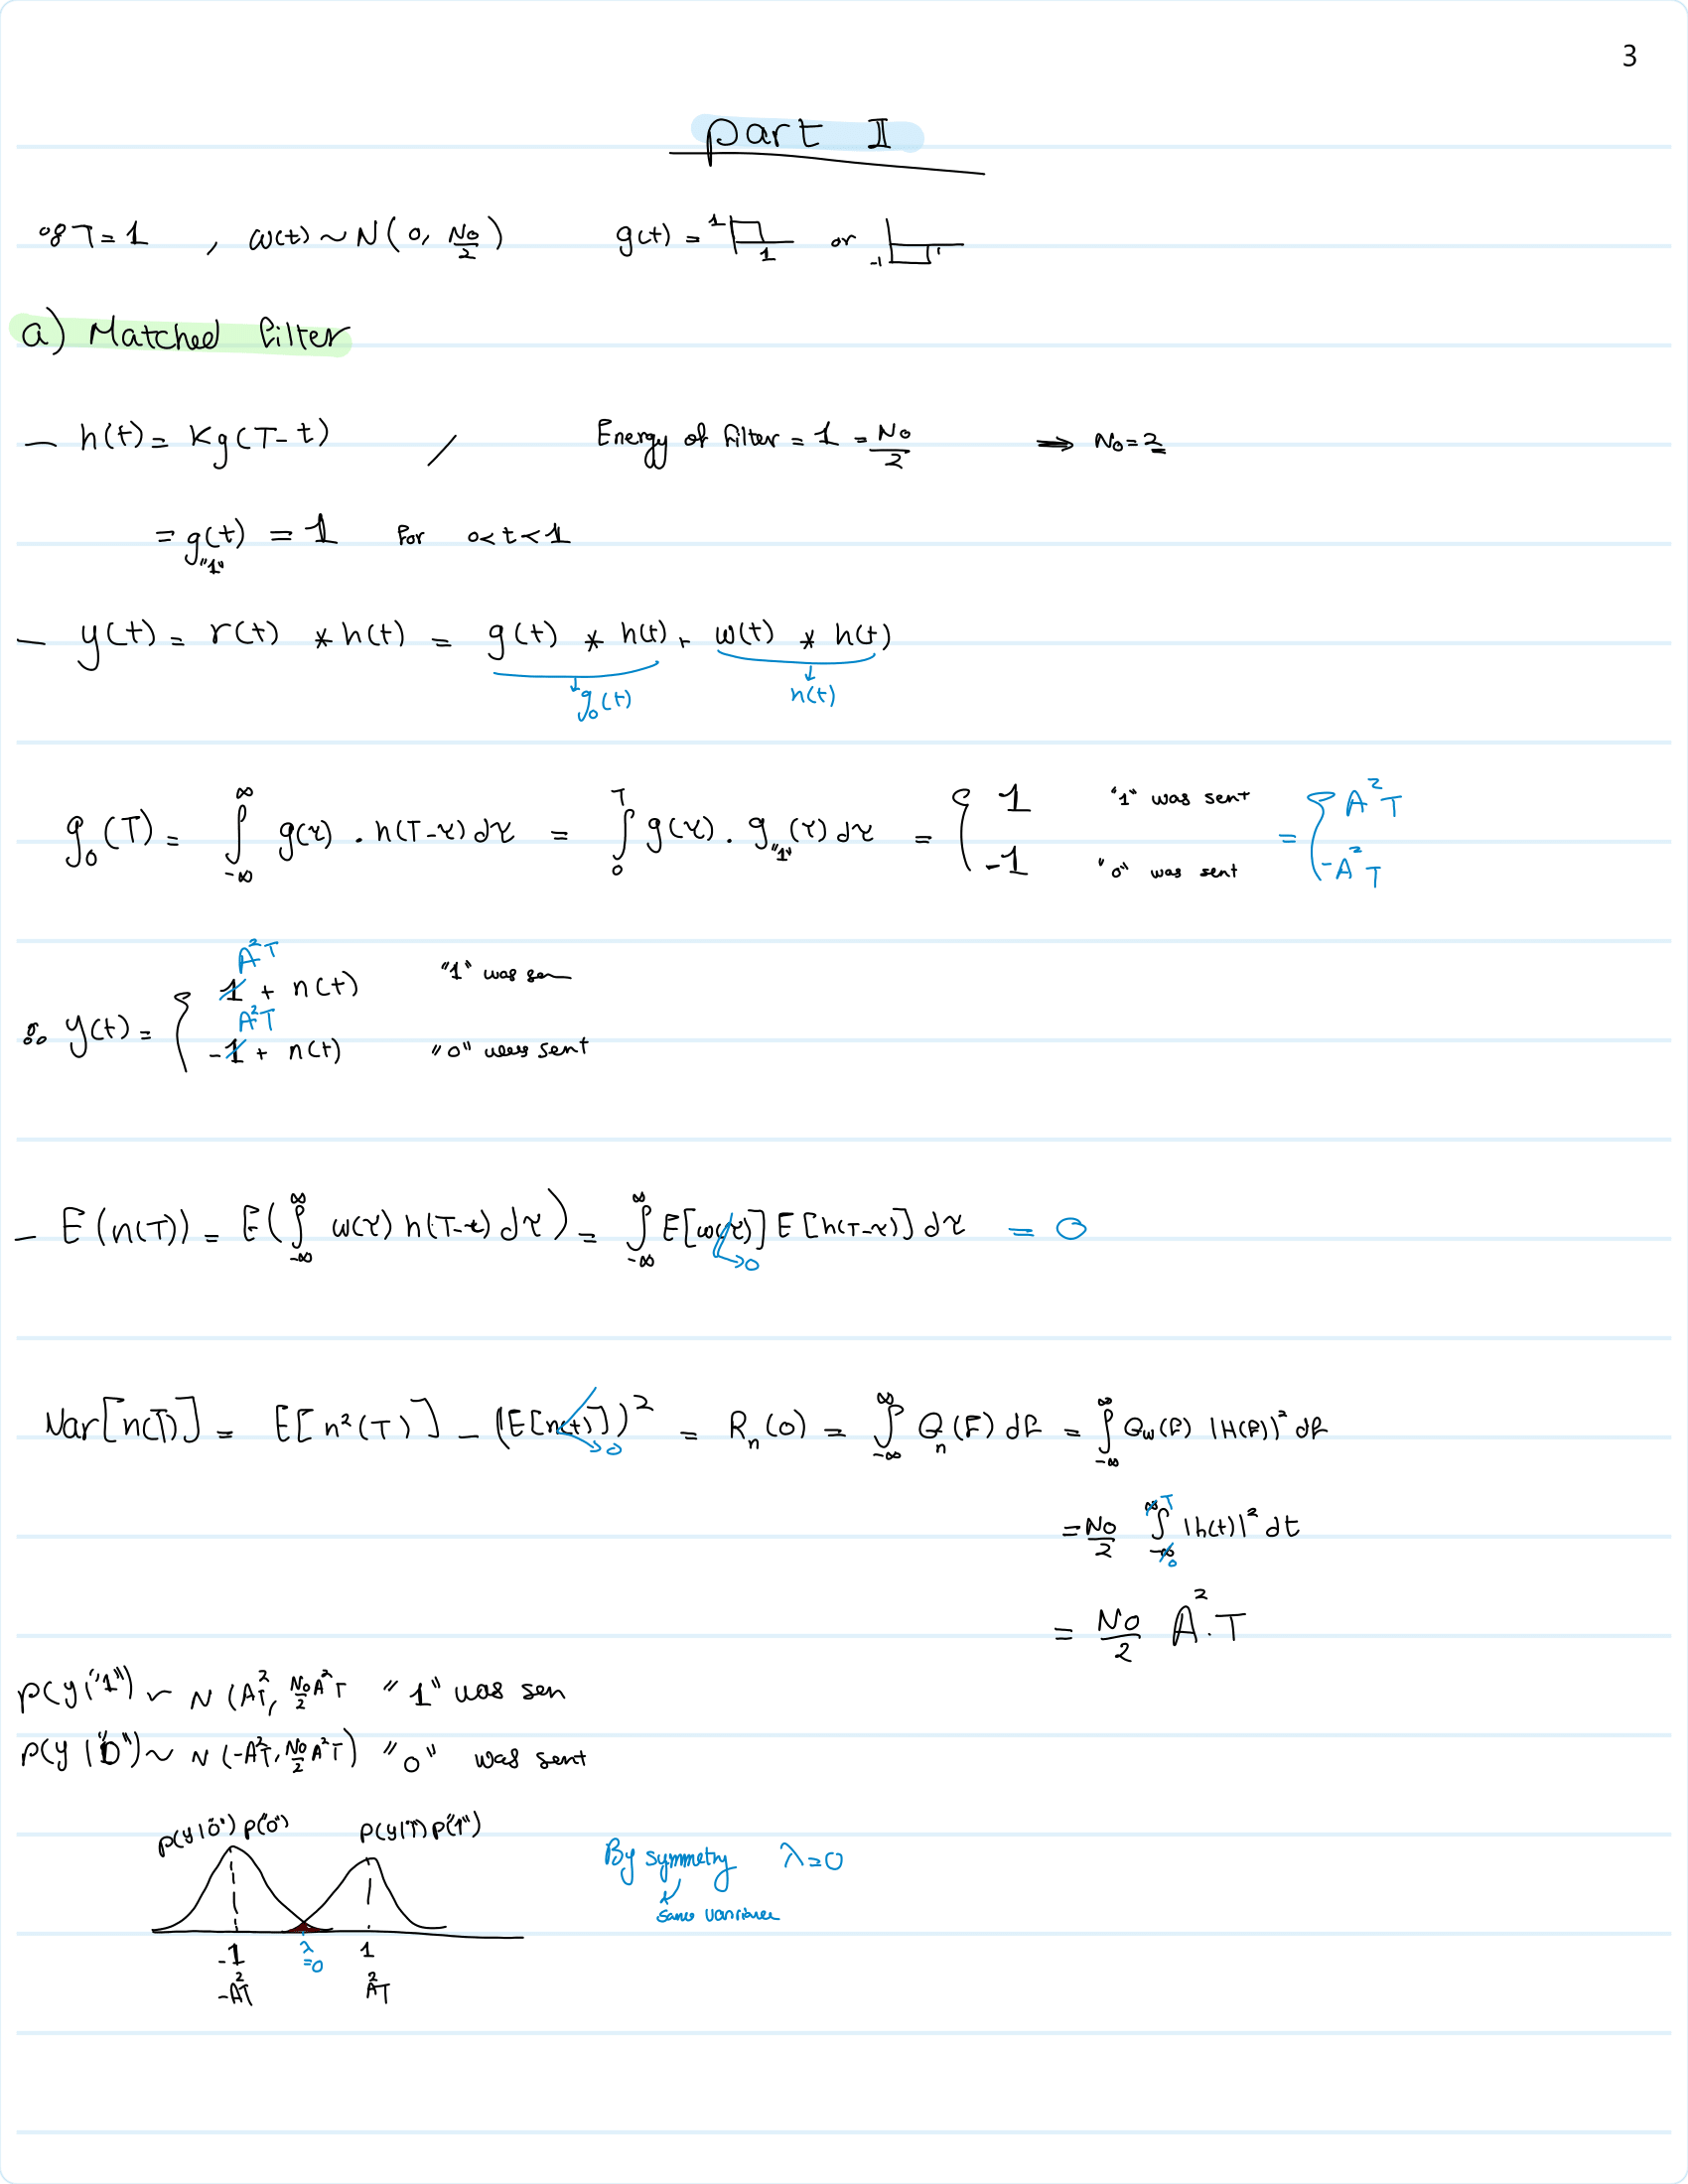 3
part I
∵ T = 1 , w(t) ~ N(0, N₀/2) g(t) = 1 1 or -1 1
a) Matched filter
— h(t) = K g(T-t) / Energy of filter = 1 = N₀/2 ⇒ N₀ = 2
= g"1"(t) = 1 for 0<t<1
— y(t) = r(t) * h(t) = g(t) * h(t) + w(t) * h(t)
g₀(t) n(t)
g₀(T) = ∫_{-∞}^{∞} g(τ) . h(T-τ) dτ = ∫_0^T g(τ) . g"1"(τ) dτ = { 1 "1" was sent = { A²T
-1 "0" was sent -A²T
A²T
1 + n(t) "1" was sen
A²T
∴ y(t) = { -1 + n(t) "0" was sent
— E(n(T)) = E(∫_{-∞}^{∞} w(τ) h(T-τ) dτ) = ∫_{-∞}^{∞} E[w(τ)] E[h(T-τ)] dτ = 0
→0
Var[n(T)] = E[n²(T)] - (E[n(t)])² = Rₙ(0) = ∫_{-∞}^{∞} Gₙ(F) dF = ∫_{-∞}^{∞} G_w(F) |H(F)|² dF
→0
= N₀/2 ∫_{-∞ 0}^{∞ T} |h(t)|² dt
= N₀/2 A².T
p(y|"1") ~ N (A²T, N₀/2 A²T "1" was sen
p(y|"0") ~ N (-A²T, N₀/2 A²T) "0" was sent
p(y|"0") p("0") p(y|"1") p("1")
By symmetry λ=0
same variance
-1 λ 1
=0
-A²T A²T